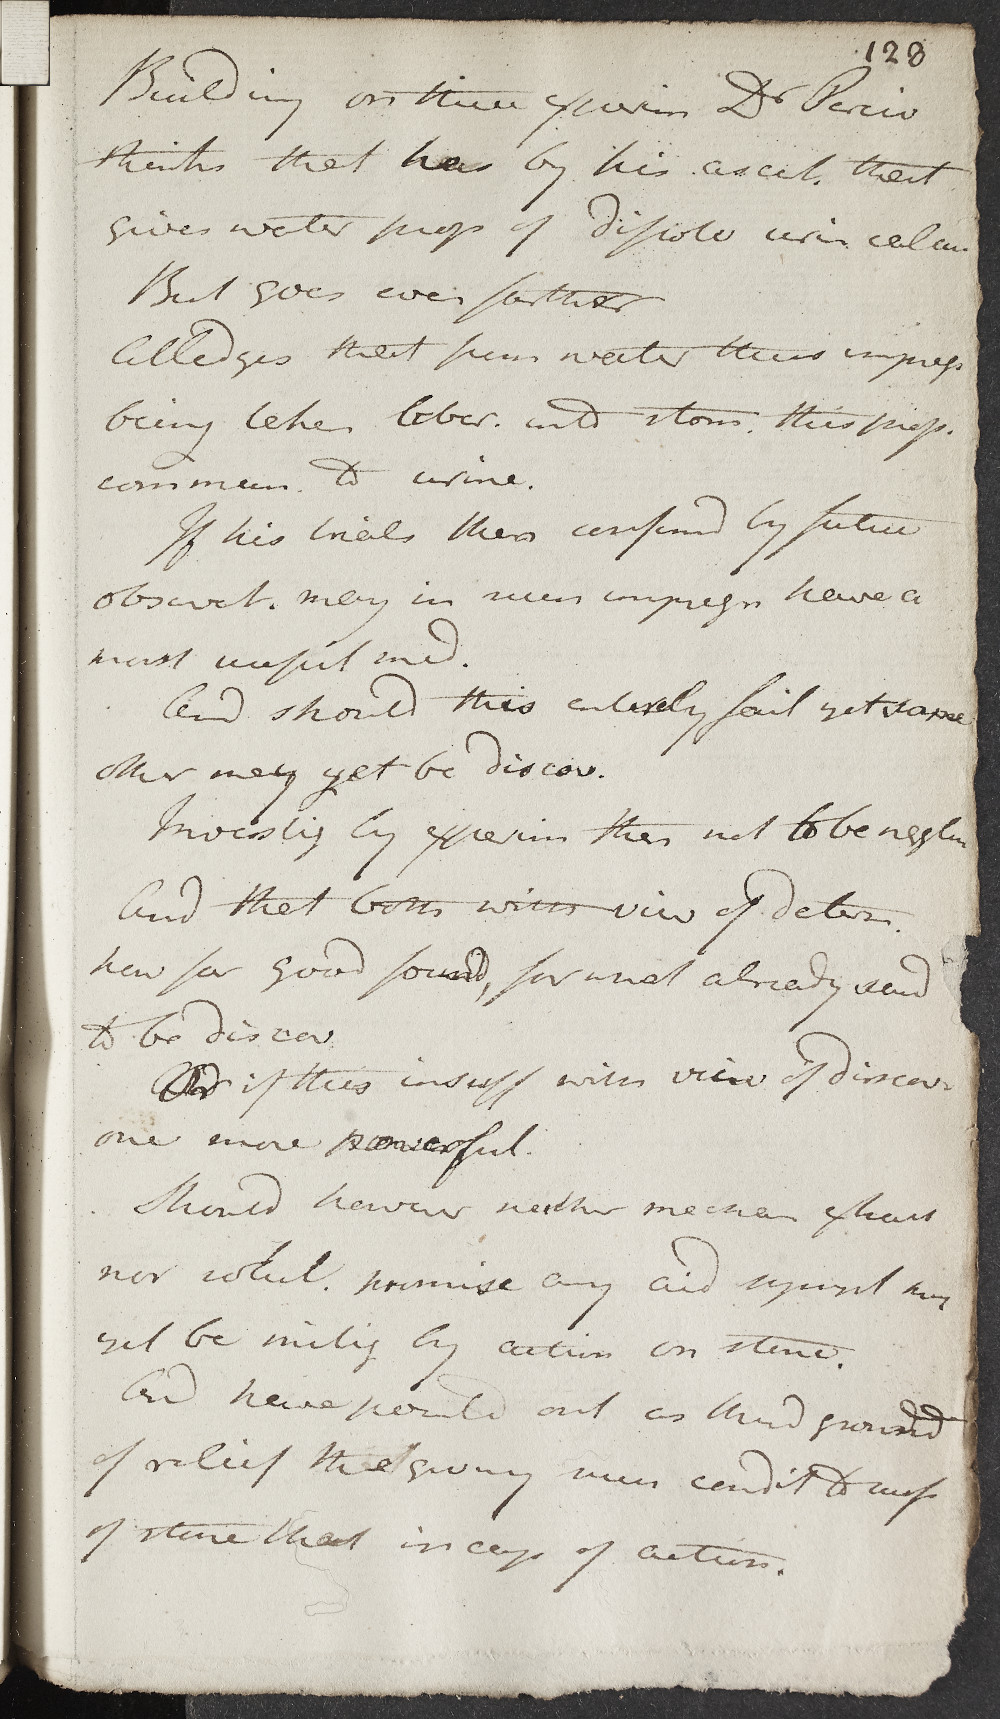 128
Building on these experim Dr Perciv
thinks that has by his ascert. that
gives water prop of dissolv urin calcu
But goes even farther
Alledges that pure water thus impreg
being taken liber. into stom. this prop.
commun. to urine.
If his trials then confirmd by future
observat. may in such impregn have a
most useful med.
And should this entirely fail yet some
other may yet be discov.
Investig by experim then not to be neglec
And that both with view of determ.
how far good found, for what already said
to be discov
Or if this insuff with view of discov
one more powerful.
Should however neither mechan extract
nor solut. promise any aid may
yet be mitig by action on stone.
And have pointed out as third ground
of relief the giving such condit to
of stone that incap of action.